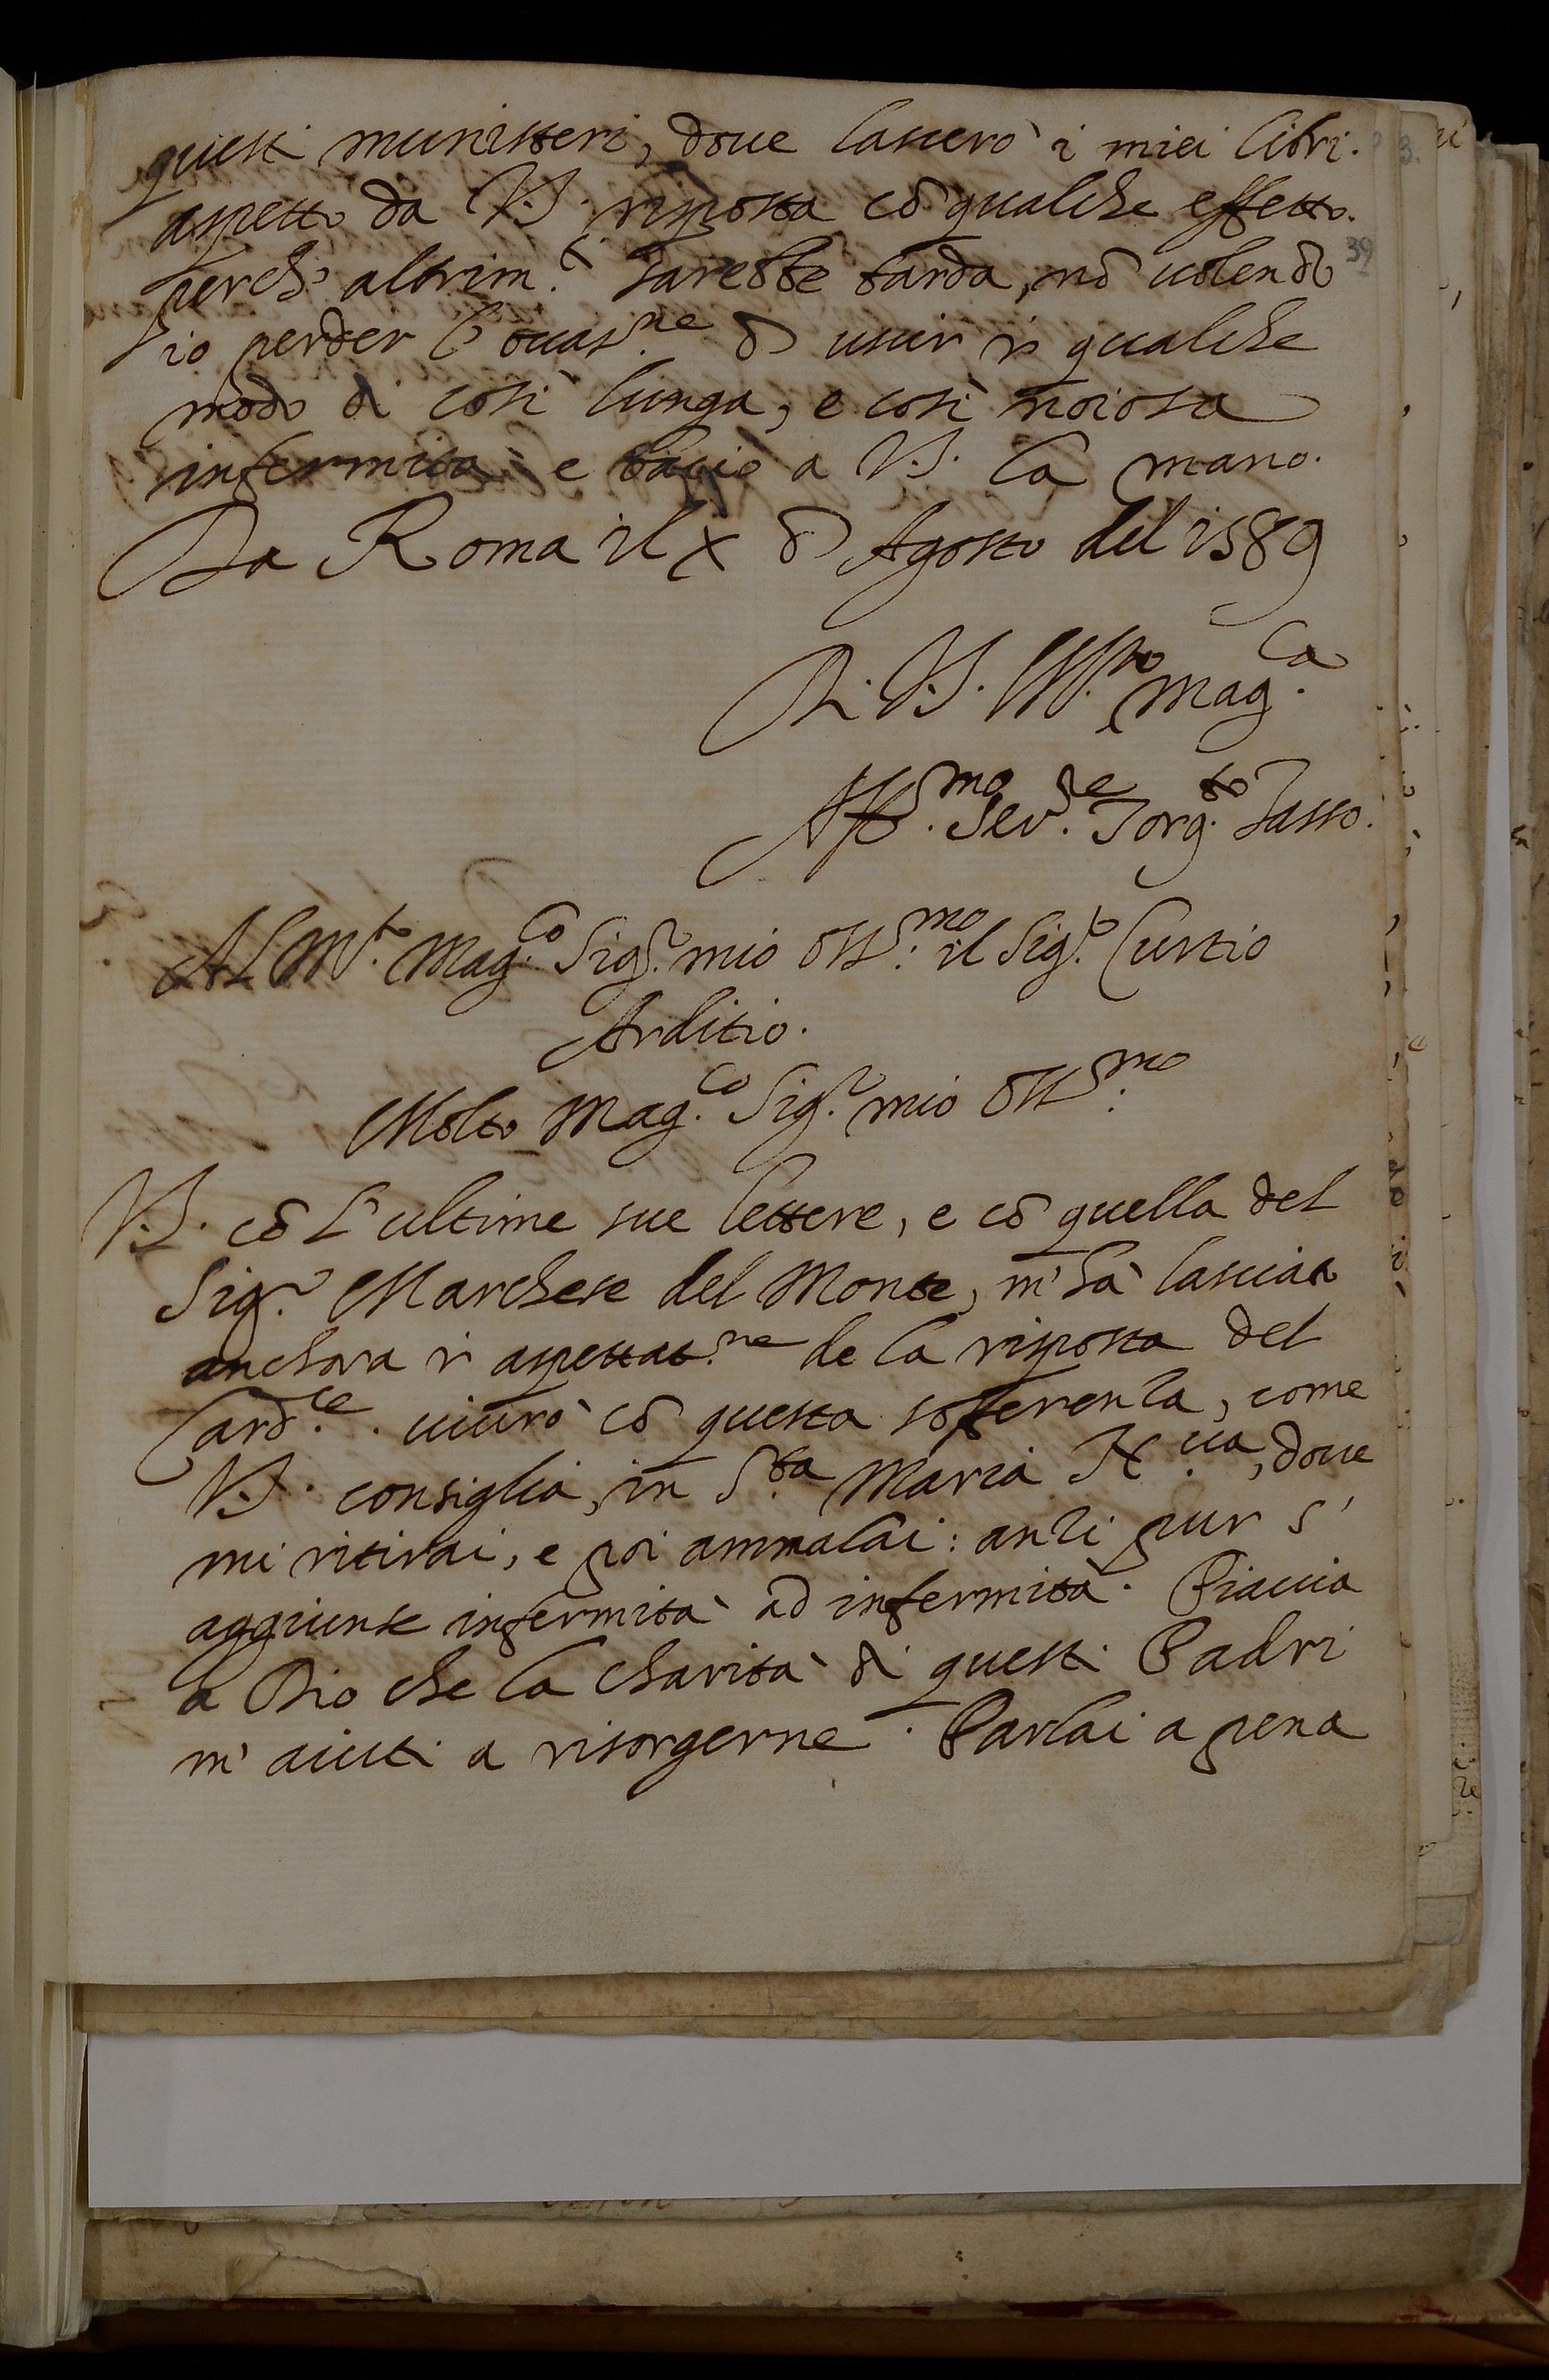 questi munisteri, doue lascerò i miei libri.
aspetto da V.S. risposta cõ qualche effetto.
perch' altrim.ti sarebbe tarda, nõ uolendo
io perder l'occas.ne d'uscir ĩ qualche
modo di così lunga, e così noiosa
infermità: e bacio a V.S. la mano.
Da Roma il X d'Agosto del 1589
Di V.S. M.to Mag.ca
Aff.mo Ser.re Torq.to Tasso.
Al M.to Mag.co Sig.r mio Oss.mo il Sig.r Curtio
Arditio.
Molto Mag.co Sig.r mio Oss.mo
V.S. cõ l'ultime sue lettere, e cõ quella del
Sig.r Marchese del Monte, m'hà lasciato
anchora ĩ aspettat.ne de la risposta del
Card.le. uiurò cõ questa sofferenza, come
V.S. consiglia, in S.ta Maria N.ua, doue
mi ritirai, e poi ammalai: anzi pur s'
aggiunse infermità ad infermità. Piaccia
a Dio che la charità di questi Padri
m'aiuti a risorgerne. Parlai a pena
39